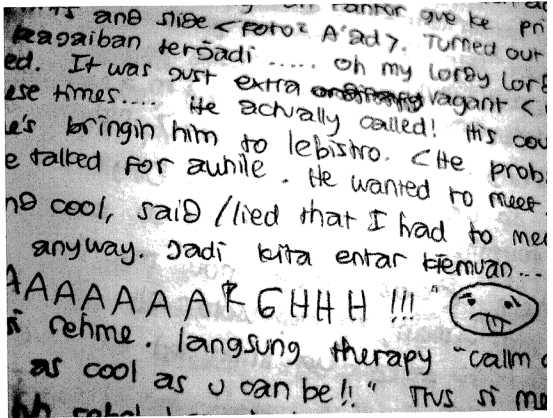 and slide < Foto² A'ad >. Turned out
keajaiban terjadi ...... oh my lordy
ed. It was just extra vagant <
ese times.... He actually called! His
e's bringin him to lebistro. <He
e talked for awhile. He wanted to meet
cool, said /lied that I had to
anyway. Jadi kita entar ktemuan...
AAAAAAAARGHHH!!!"
rehme. langsung therapy "callm
as cool as u can be!!" Thus si